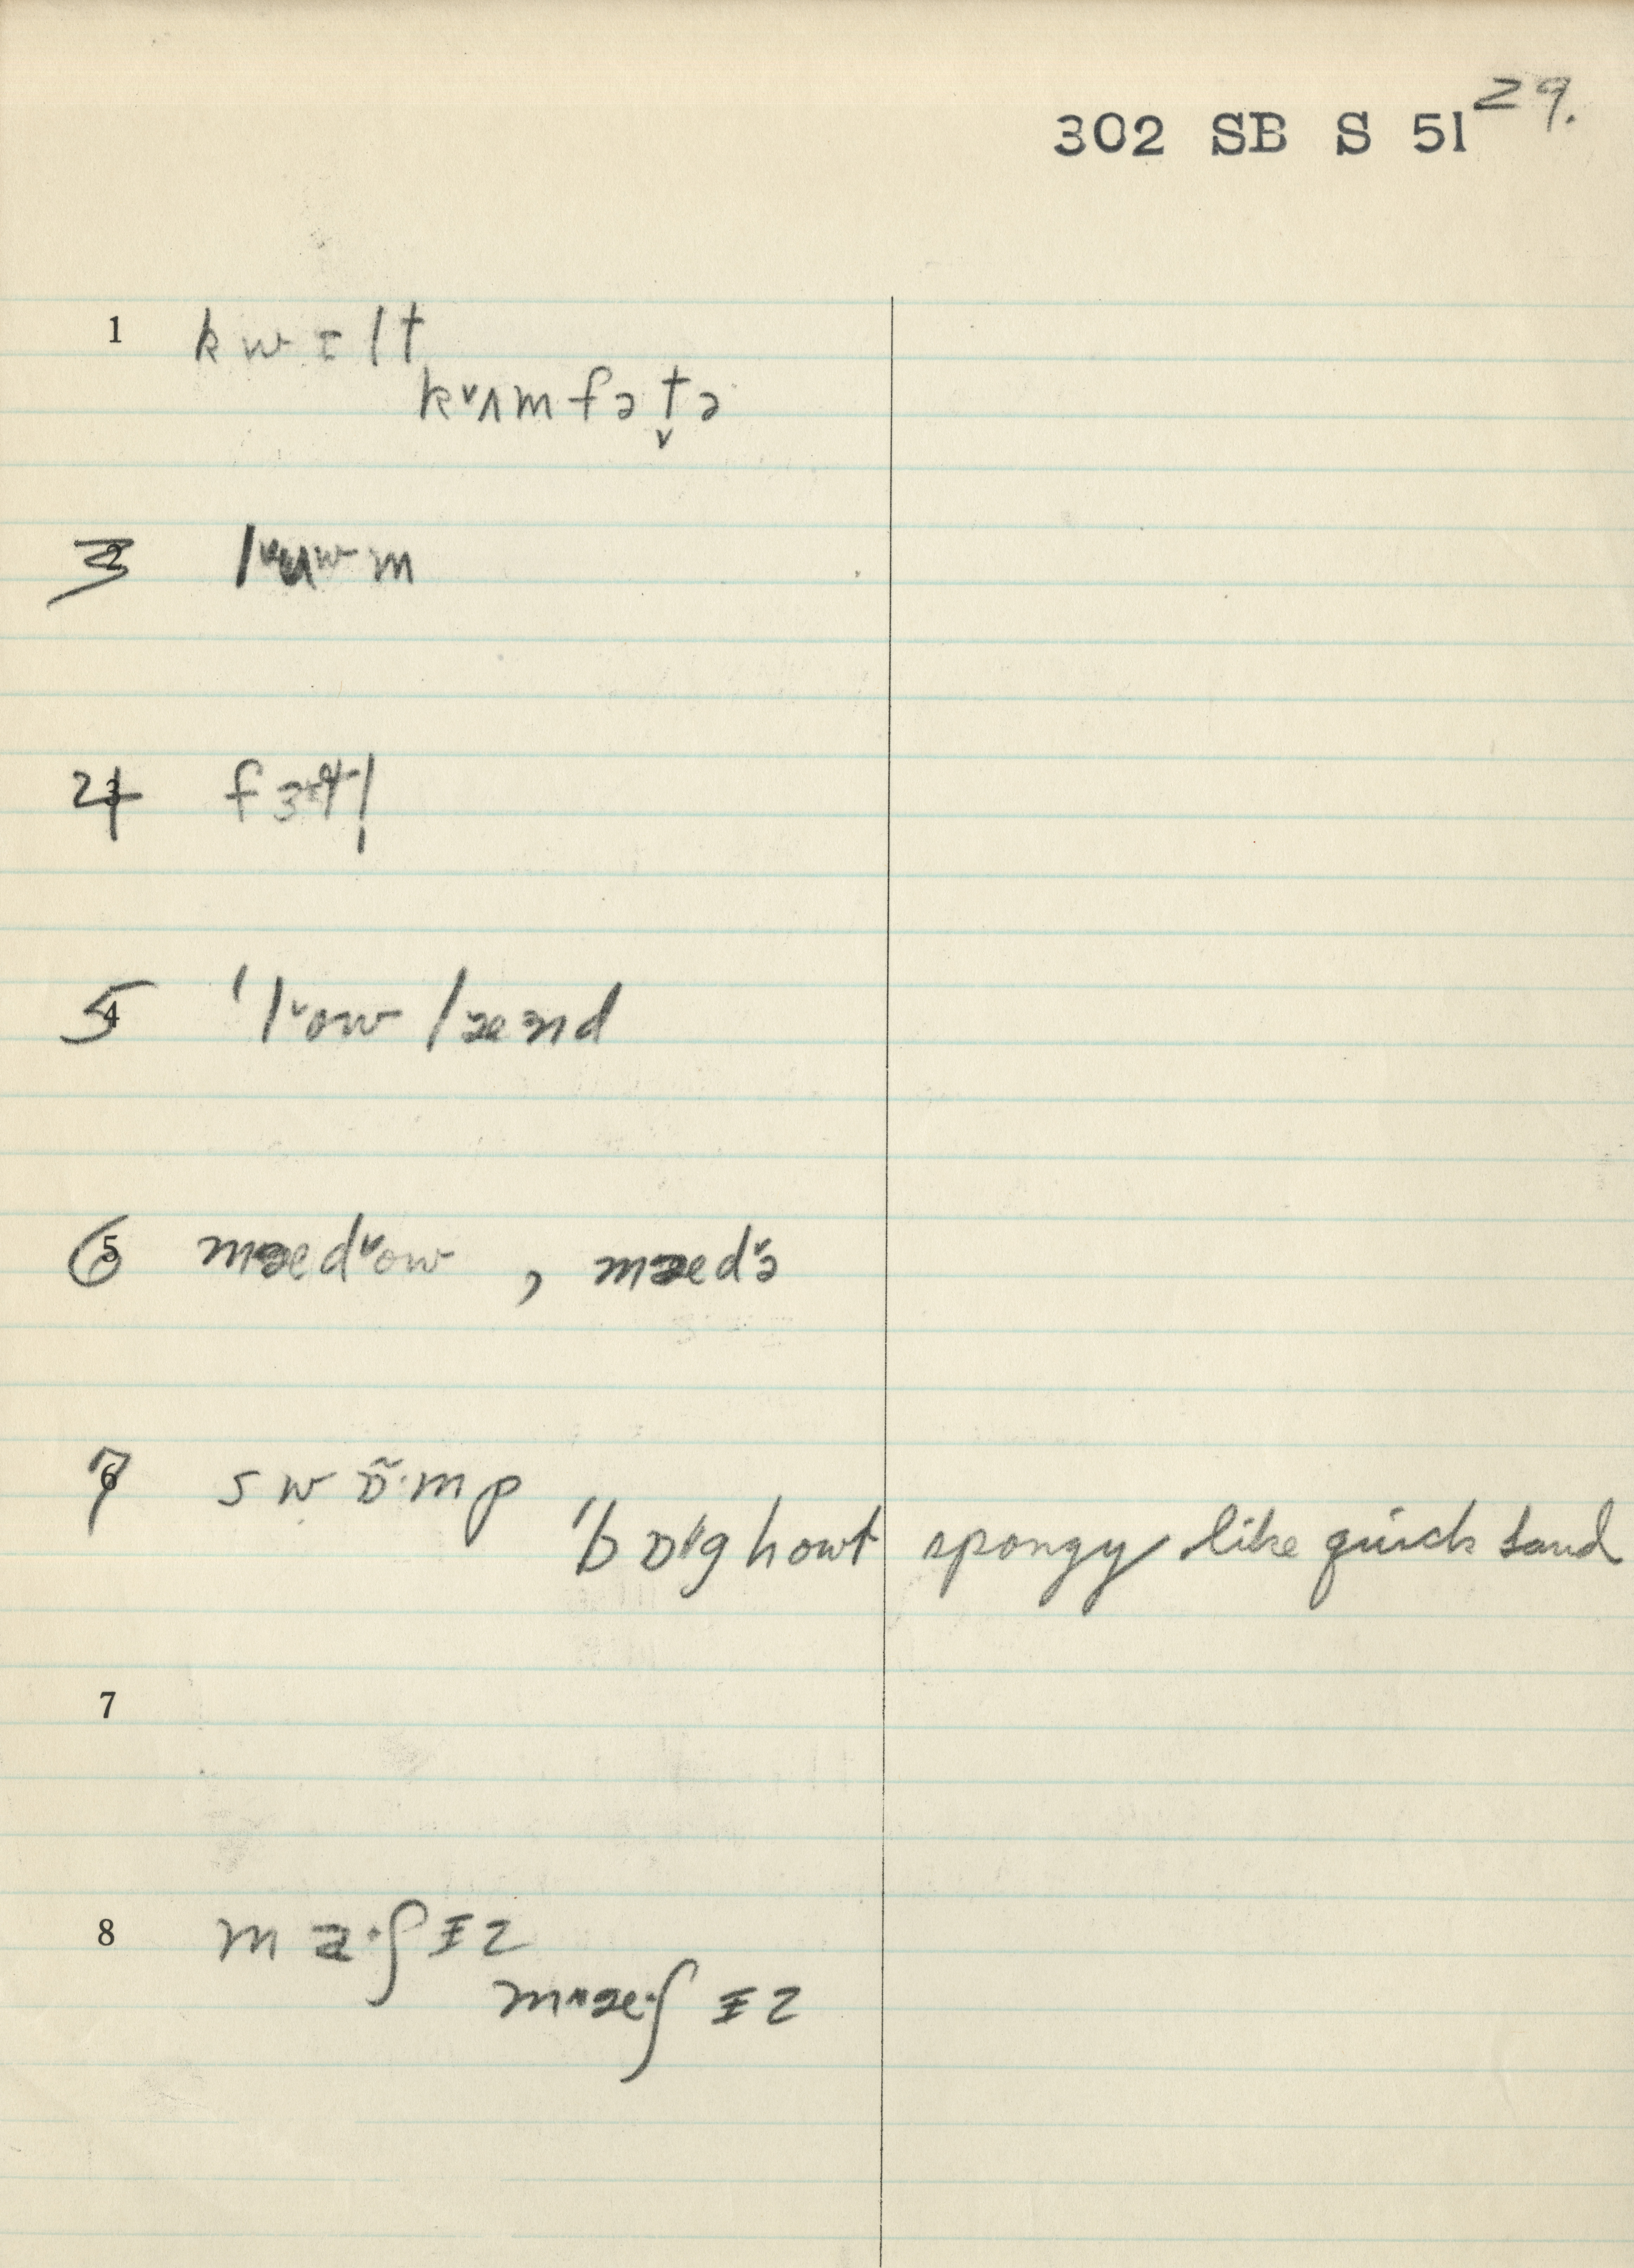 29.
302 SB S 51
1 kwɪlt
kᵛʌmfət̬ə
3 lᵛuʷm
4 fɜɚtl̩
5 ˈlᵛow lænd
6 mædᵛow , mædᵛə
7 swɒ̃·mp
ˈbɒˈg howt spongy like quick sand
7
8 ma·ʃɪz
mæ·ʃɪz